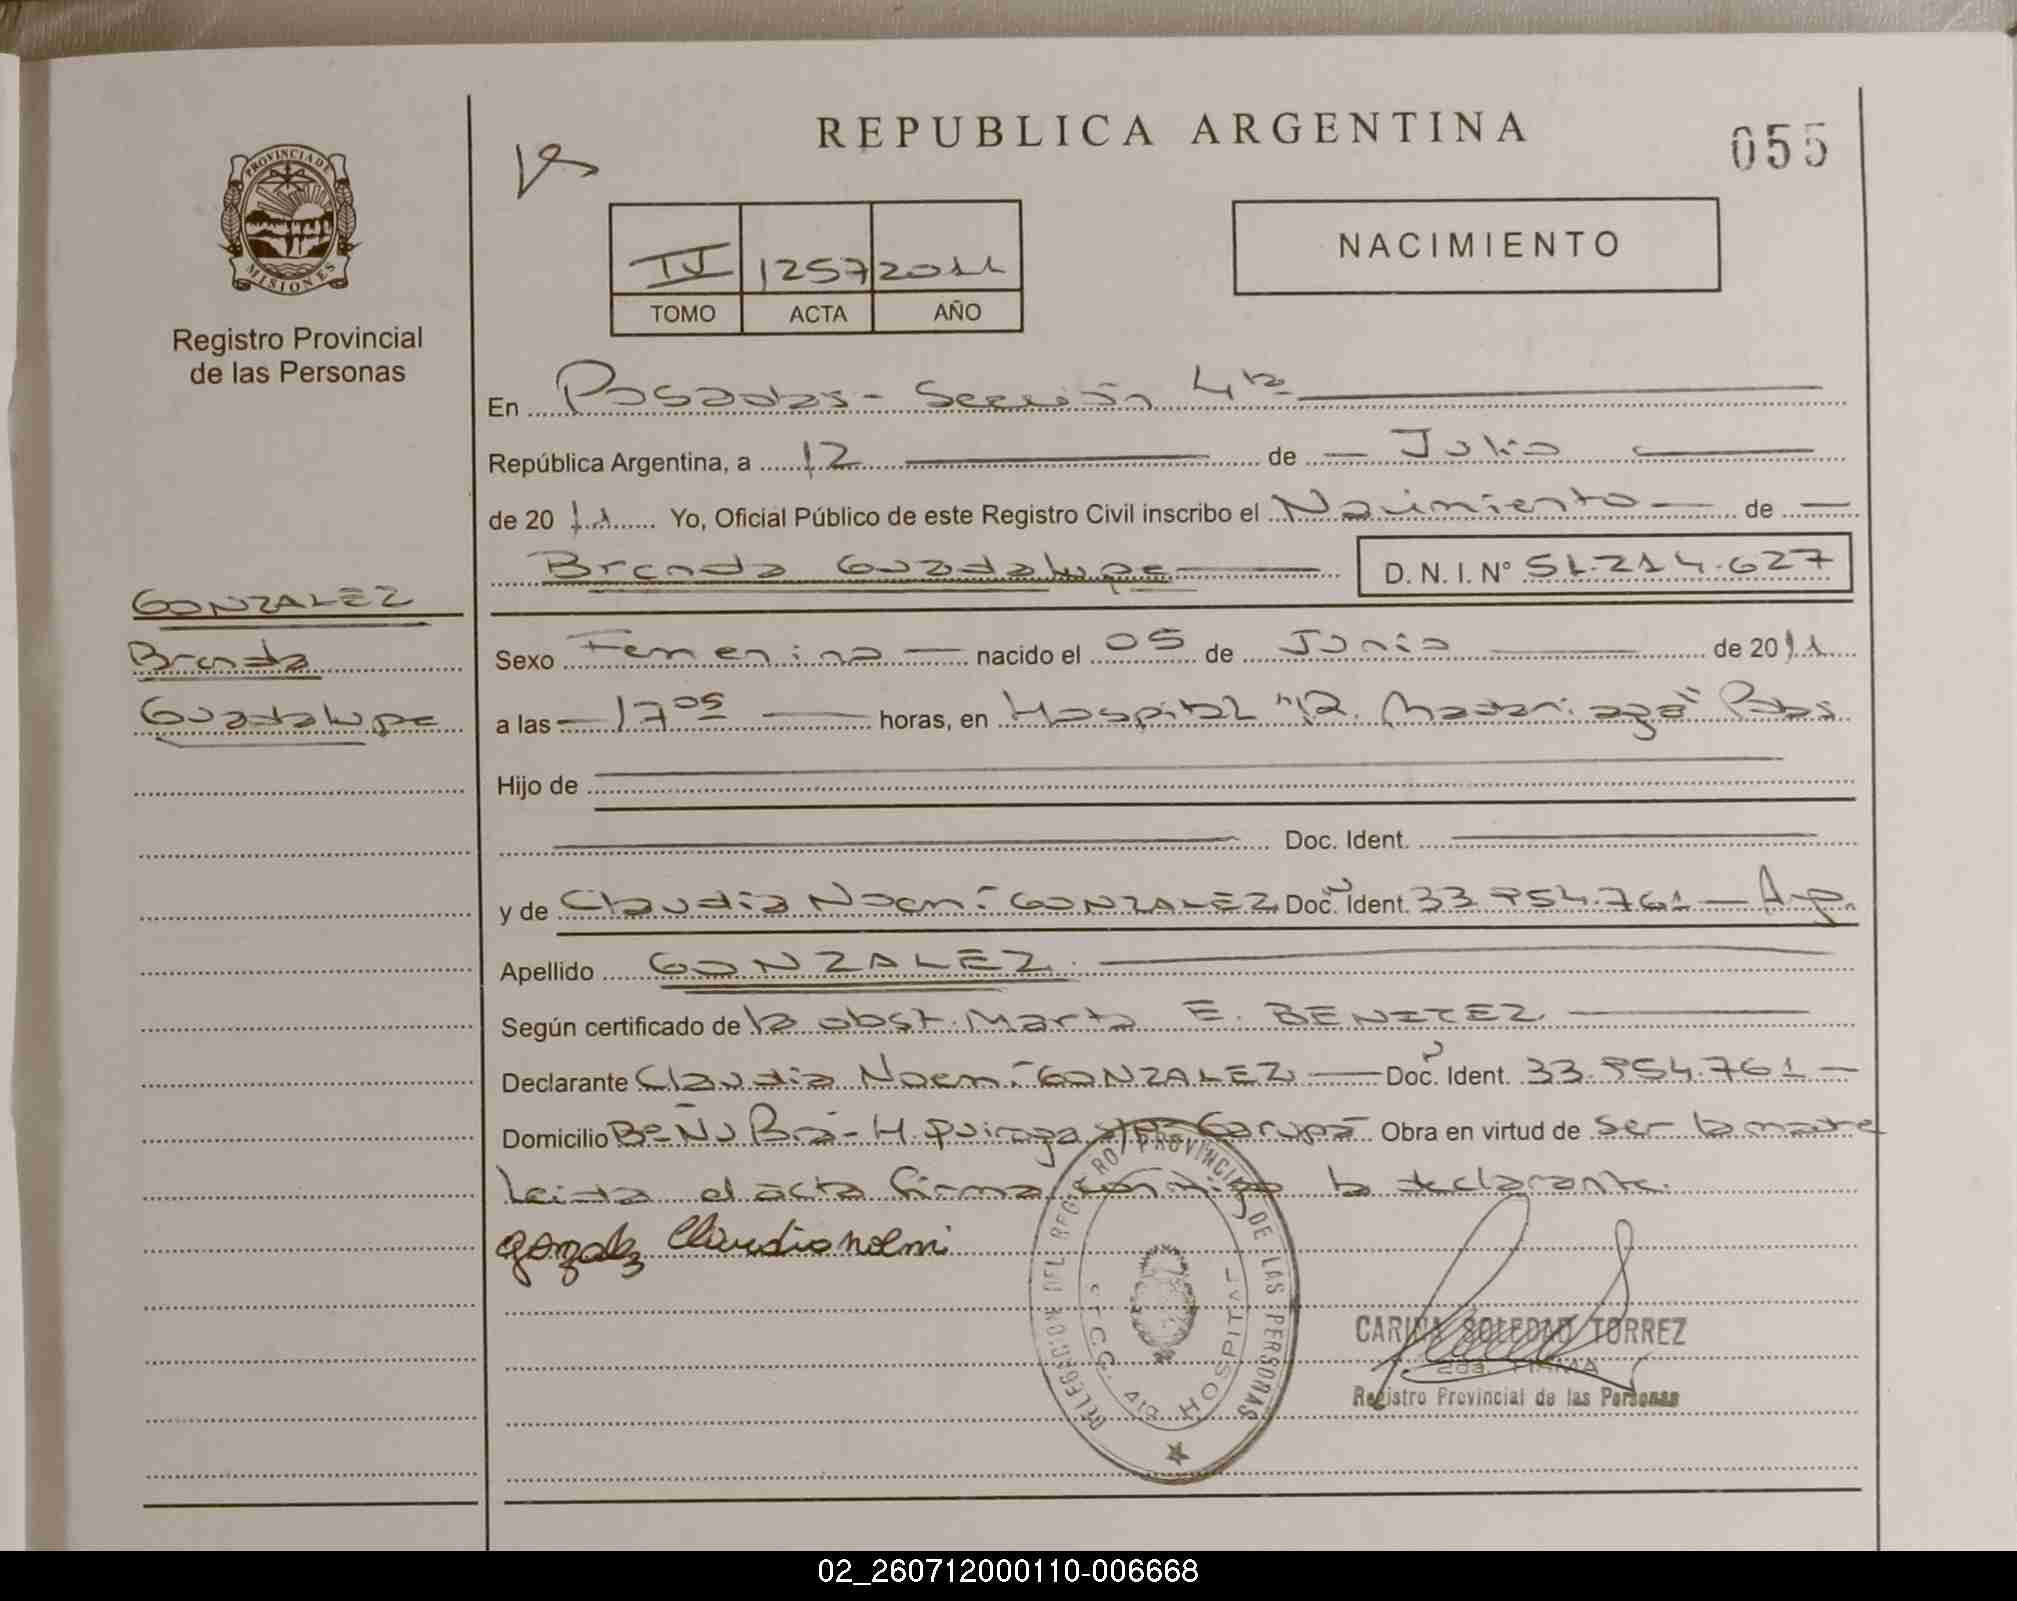 REPUBLICA ARGENTINA
055
PROVINCIA DE
MISIONES
Registro Provincial
de las Personas
NACIMIENTO
IV 1257 2011
TOMO ACTA AÑO
En Posadas - Sección 4ta
República Argentina, a 12 de Julio
de 2011 Yo, Oficial Público de este Registro Civil inscribo el Nacimiento de
Brenda Guadalupe D. N. I. N° 51.214.627
GONZALEZ
Brenda
Guadalupe
Sexo Femenino nacido el 05 de Junio de 2011
a las 17 05 horas, en Hospital "R. Madariaga" Pdas
Hijo de
Doc. Ident.
y de Claudia Noemí GONZALEZ Doc. Ident. 33.954.761 - Arg.
Apellido GONZALEZ
Según certificado de la obst. Marta E. BENITEZ
Declarante Claudia Noemí GONZALEZ Doc. Ident. 33.954.761
Domicilio Bº Ñu Porá - H. Quiroga Garupá Obra en virtud de ser la madre
Leida el acta firma conmigo la declarante.
Gonzalez Claudia noemi
DELEGACION DEL REGISTRO PROVINCIAL DE LAS PERSONAS
SECC. 4ta HOSPITAL
CARINA SOLEDAD TORREZ
2da. FIRMA
Registro Provincial de las Personas
02_260712000110-006668